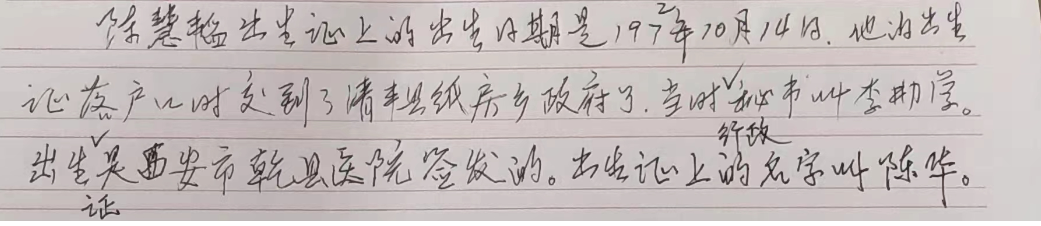 陈慧韬出生证上的出生日期是1972年10月14日. 他的出生
证落户口时交到了清丰县纸房乡政府了. 当时行政秘书叫李勋学。
出生证是西安市乾县医院签发的。出生证上的名字叫陈华。